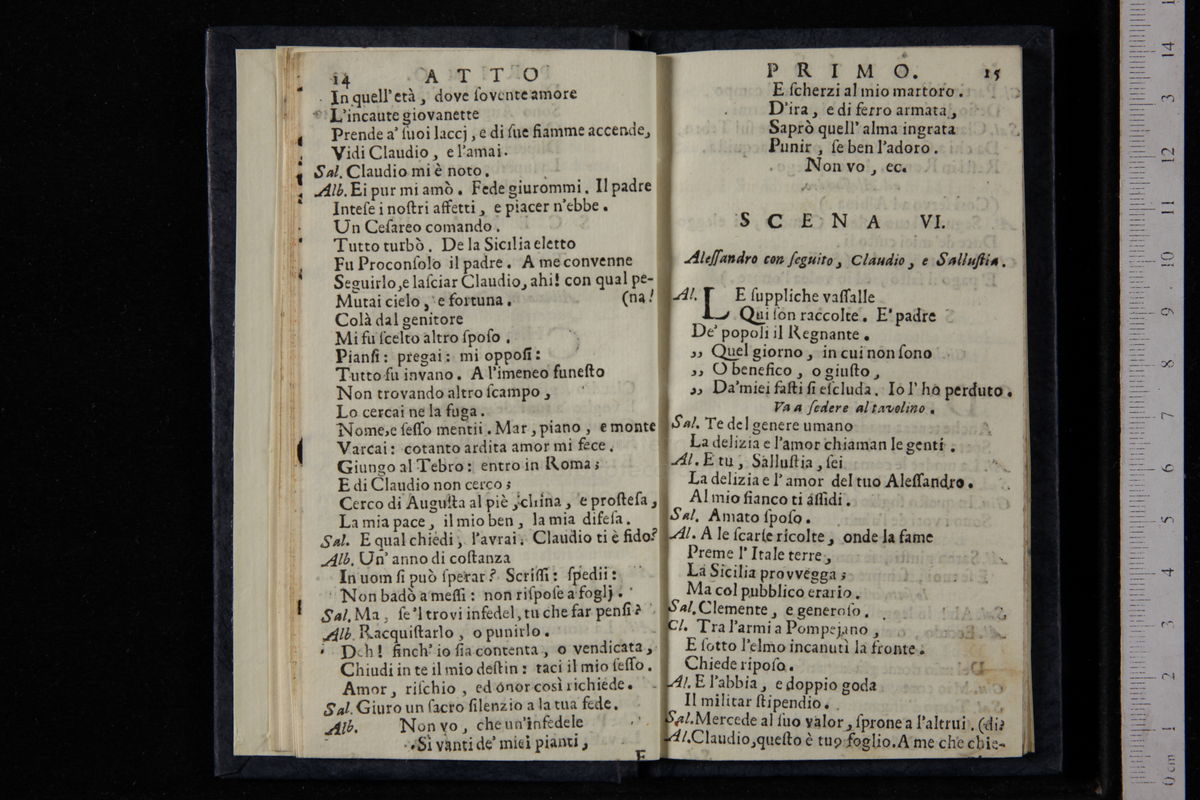 14 ATTO
In quell' età, dove ſovente amore
L'incaute giovanette
Prende a' ſuoi laccj, e di ſue fiamme accende,
Vidi Claudio, e l'amai.
Sal. Claudio mi è noto.
Alb. Ei pur mi amò. Fede giurommi. Il padre
Inteſe i noſtri affetti, e piacer n'ebbe.
Un Ceſareo comando.
Tutto turbò. De la Sicilia eletto
Fu Proconſolo il padre. A me convenne
Seguirlo, e laſciar Claudio, ahi! con qual pe-
Mutai cielo, e fortuna. (na!
Colà dal genitore
Mi fu ſcelto altro ſpoſo.
Pianſi: pregai: mi oppoſi:
Tutto fu invano. A l'imeneo funeſto
Non trovando altro ſcampo,
Lo cercai ne la fuga.
Nome, e ſeſſo mentii. Mar, piano, e monte
Varcai: cotanto ardita amor mi fece.
Giungo al Tebro: entro in Roma;
E di Claudio non cerco;
Cerco di Auguſta al piè, china, e proſteſa,
La mia pace, il mio ben, la mia difeſa.
Sal. E qual chiedi, l'avrai. Claudio ti è fido?
Alb. Un' anno di coſtanza
In uom ſi può ſperar? Scriſſi: ſpedii:
Non badò a meſſi: non riſpoſe a foglj.
Sal. Ma, ſe 'l trovi infedel, tu che far penſi?
Alb. Racquiſtarlo, o punirlo.
Deh! finch' io ſia contenta, o vendicata,
Chiudi in te il mio deſtin: taci il mio ſeſſo.
Amor, riſchio, ed onor così richiede.
Sal. Giuro un ſacro ſilenzio a la tua fede.
Alb. Non vo, che un'infedele
Si vanti de' miei pianti,
E
PRIMO. 15
E ſcherzi al mio martoro.
D'ira, e di ferro armata,
Saprò quell' alma ingrata
Punir, ſe ben l'adoro.
Non vo, ec.
SCENA VI.
Aleſſandro con ſeguito, Claudio, e Salluſtia.
Al. LE ſuppliche vaſſalle
Qui ſon raccolte. E' padre
De' popoli il Regnante.
„ Quel giorno, in cui non ſono
„ O benefico, o giuſto,
„ Da'miei faſti ſi eſcluda. Io l' hò perduto.
Va a ſedere al tavolino.
Sal. Te del genere umano
La delizia e l'amor chiaman le genti.
Al. E tu, Salluſtia, ſei
La delizia e l' amor del tuo Aleſſandro.
Al mio fianco ti aſſidi.
Sal. Amato ſpoſo.
Al. A le ſcarſe ricolte, onde la fame
Preme l' Itale terre,
La Sicilia provvegga;
Ma col pubblico erario.
Sal. Clemente, e generoſo.
Cl. Tra l'armi a Pompejano,
E ſotto l'elmo incanutì la fronte.
Chiede ripoſo.
Al. E l'abbia, e doppio goda
Il militar ſtipendio.
Sal. Mercede al ſuo valor, ſprone a l'altrui. (di?
Al. Claudio, queſto è tuo foglio. A me che chie-